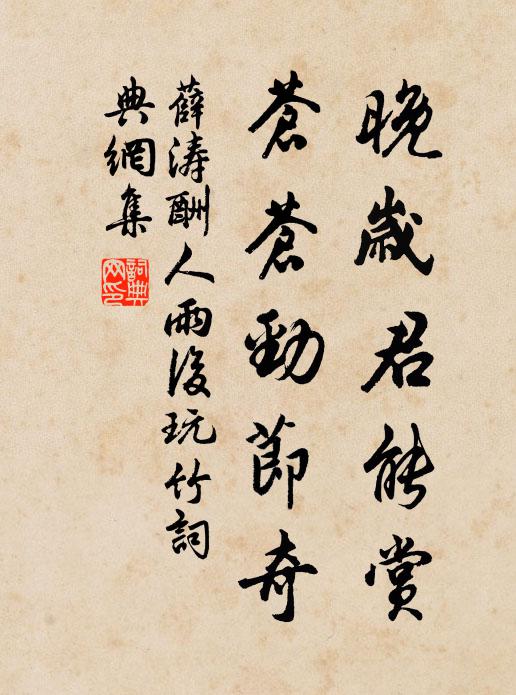 晚歲君能賞
蒼蒼勁節奇
薛濤酬人雨後玩竹詞
典網集
詞典
网印